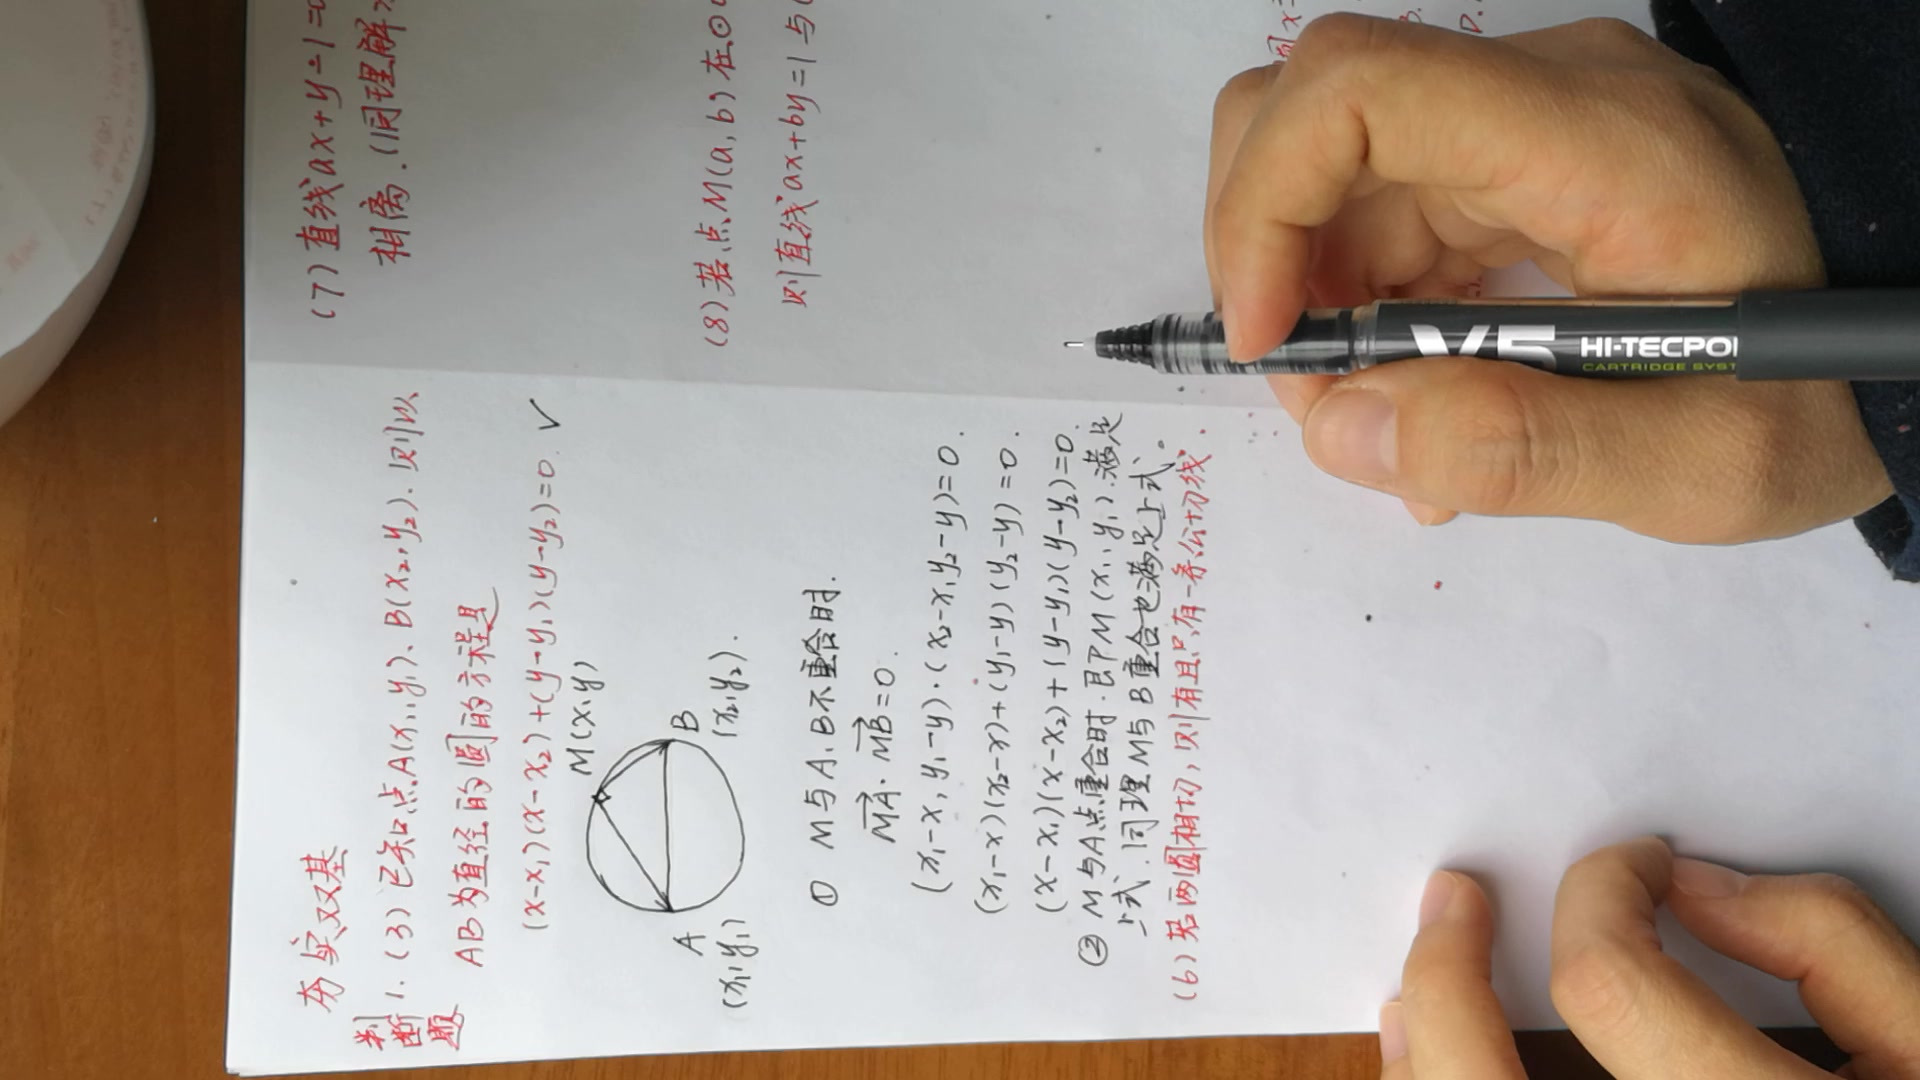 夯实双基
判断题
1.(3)已知点A(x₁,y₁)、B(x₂,y₂).则以
AB为直径的圆的方程是
(x-x₁)(x-x₂)+(y-y₁)(y-y₂)=0. √
M(x,y)
A
(x₁,y₁)
B
(x₂,y₂).
① M与A、B不重合时.
MA·MB=0.
(x₁-x,y₁-y)·(x₂-x,y₂-y)=0.
(x₁-x)(x₂-x)+(y₁-y)(y₂-y)=0.
(x-x₁)(x-x₂)+(y-y₁)(y-y₂)=0.
② M与A点重合时.即M(x₁,y₁).满足
上式.同理M与B重合也满足上式.
(6)若两圆相切,则有且只有一条公切线.
(7)直线ax+y-1=0
相离.(同理解
(8)若点M(a,b)在⊙
则直线ax+by=1与
圆x
B.
D.
V5
HI-TECPOI
CARTRIDGE SYST